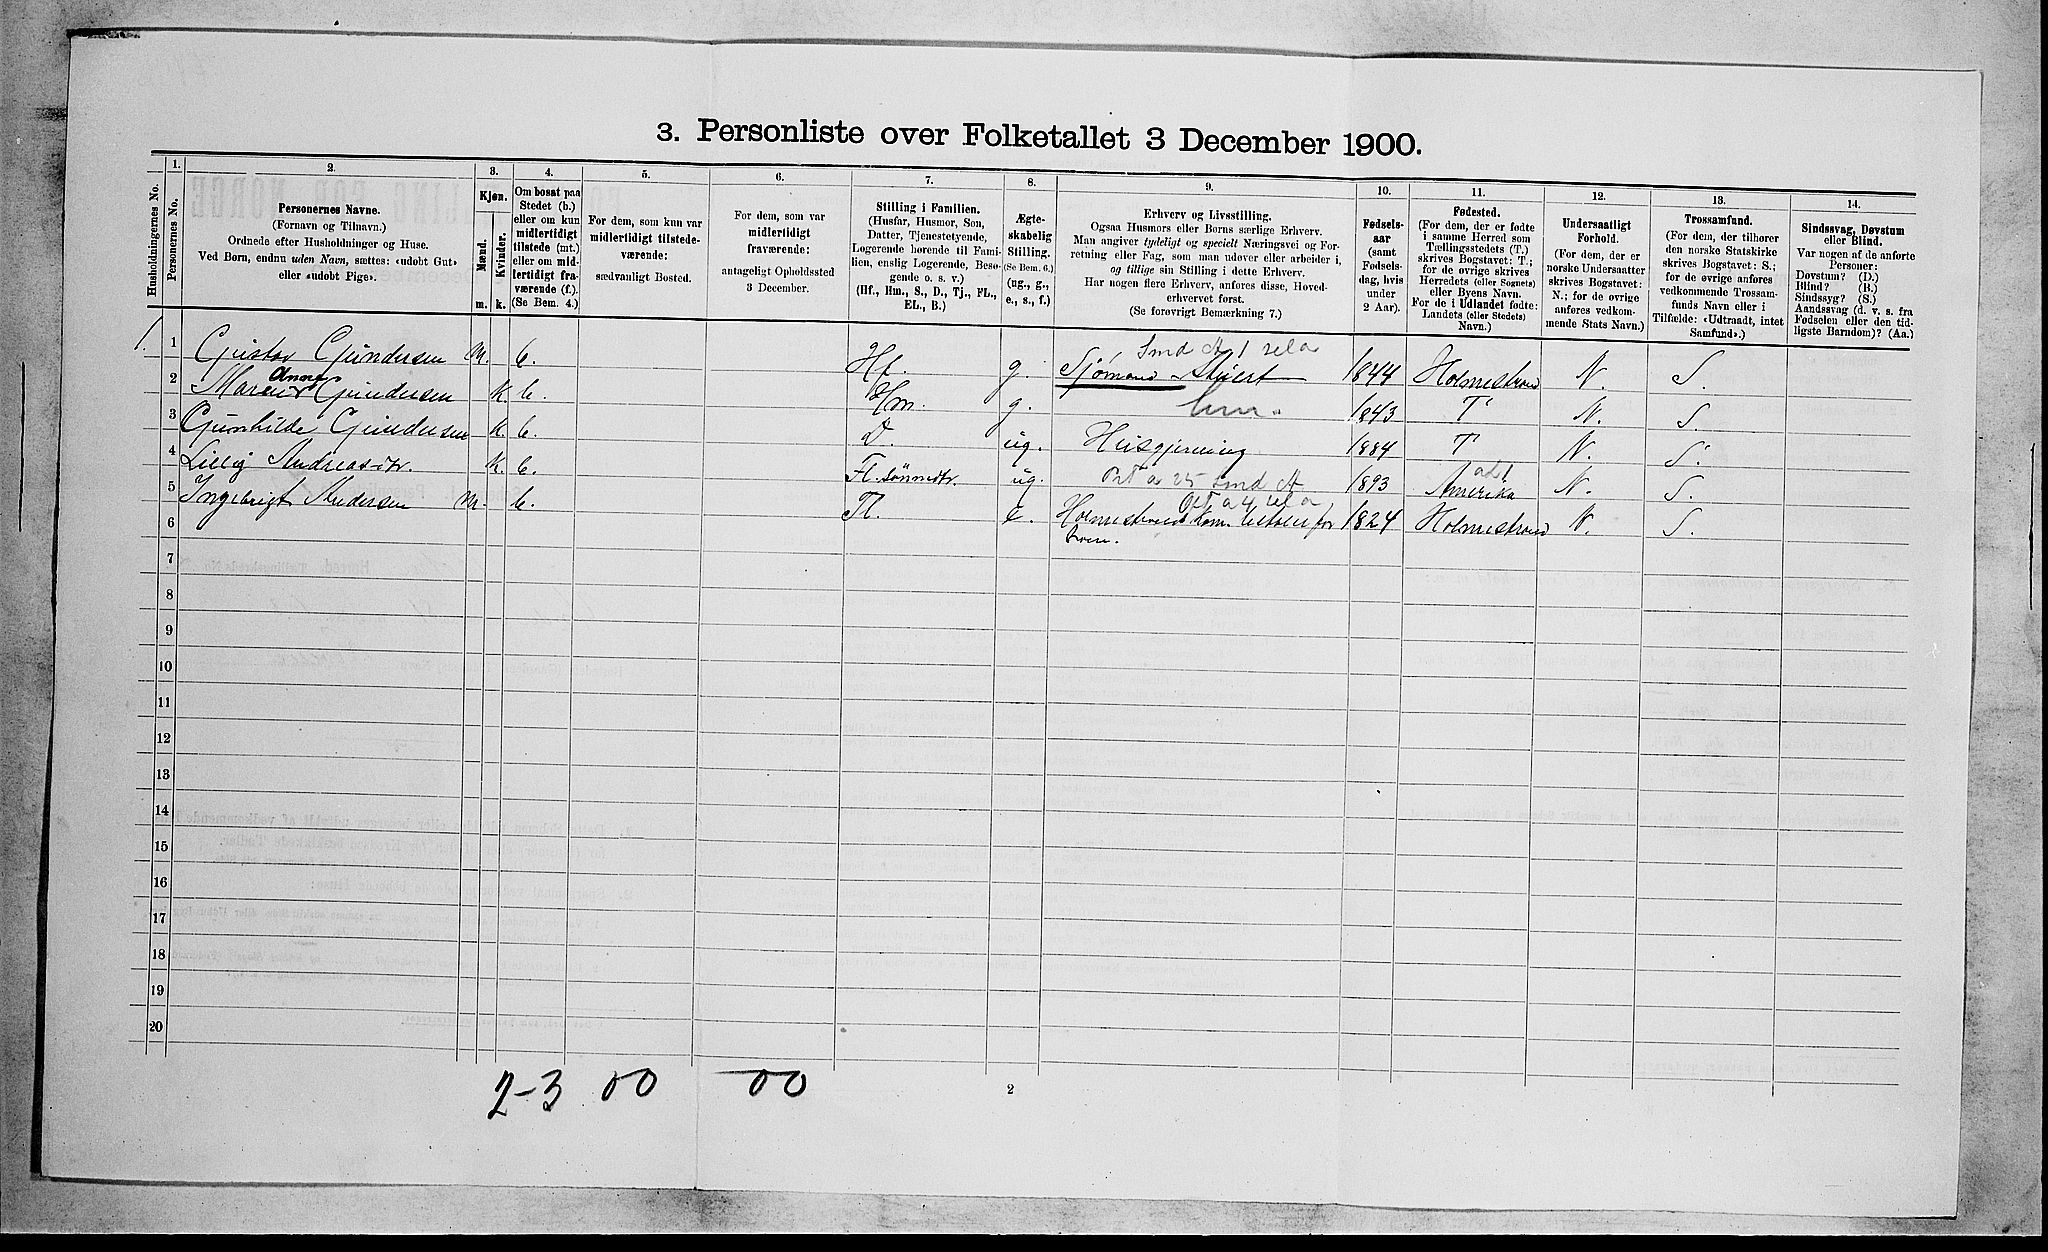 3. Personliste over Folketallet 3 December 1900.
Husholdningernes No.
1.
Personernes No.
2.
Personernes Navne.
(Fornavn og Tilnavn.)
Ordnede efter Husholdninger og Huse.
Ved Børn, endnu uden Navn, sættes: «udobt Gut»
eller «udobt Pige».
3.
Kjøn.
Mænd.
Kvinder.
m. k.
4.
Om bosat paa
Stedet (b.)
eller om kun
midlertidigt
tilstede (mt.)
eller om mid-
lertidigt fra-
værende (f.).
(Se Bem. 4.)
5.
For dem, som kun var
midlertidigt tilstede-
værende:
sædvanligt Bosted.
6.
For dem, som var
midlertidigt
fraværende:
antageligt Opholdssted
3 December.
7.
Stilling i Familien.
(Husfar, Husmor, Søn,
Datter, Tjenestetyende,
Logerende hørende til Fami-
lien, enslig Logerende, Besø-
gende o. s. v.)
(Hf., Hm., S., D., Tj., FL.,
EL., B.)
8.
Ægte-
skabelig
Stilling.
(Se Bem. 6.)
(ug., g.,
e., s., f.)
9.
Erhverv og Livsstilling.
Ogsaa Husmors eller Børns særlige Erhverv.
Man angiver tydeligt og specielt Næringsvei og For-
retning eller Fag, som man udøver eller arbeider i,
og tillige sin Stilling i dette Erhverv.
Har nogen flere Erhverv, anføres disse, Hoved-
erhvervet først.
(Se forøvrigt Bemærkning 7.)
10.
Fødsels-
aar
(samt
Fødsels-
dag, hvis
under
2 Aar).
11.
Fødested.
(For dem, der er fødte
i samme Herred som
Tællingsstedets (T.)
skrives Bogstavet: T.;
for de øvrige skrives
Herredets (eller Sognets)
eller Byens Navn.
For de i Udlandet fødte:
Landets (eller Stedets)
Navn.)
12.
Undersaatligt
Forhold.
(For dem, der er
norske Undersaatter
skrives Bogstavet:
N.; for de øvrige
anføres vedkom-
mende Stats Navn.)
13.
Trossamfund.
(For dem, der tilhører
den norske Statskirke
skrives Bogstavet: S.;
for de øvrige anføres
vedkommende Trossam-
funds Navn eller i
Tilfælde: «Udtraadt, intet
Samfund».)
14.
Sindssvag, Døvstum
eller Blind.
Var nogen af de anførte
Personer:
Døvstum? (D.)
Blind? (B.)
Sindssyg? (S.)
Aandssvag (d. v. s. fra
Fødselen eller den tid-
ligste Barndom)? (Aa.)
1. 1 Gustav Gundersen m. b. Hf. g. Sjømand 1844 Holmestrand N. S.
2 Anne Gundersen k. b. Hm. g. hm. 1843 T N. S.
3 Gunhilde Gundersen k. b. D. ug. Husgjerning 1884 T N. S.
4 Lilly Andreasdtr. k. b. Fl. sønnedtr. ug. 1893 Amerika N. S.
5 Ingebrigt Andersen m. b. Fl. e. 1824 Holmestrand N. S.
6
7
8
9
10
11
12
13
14
15
16
17
18
19
20
2-3 00 00
2